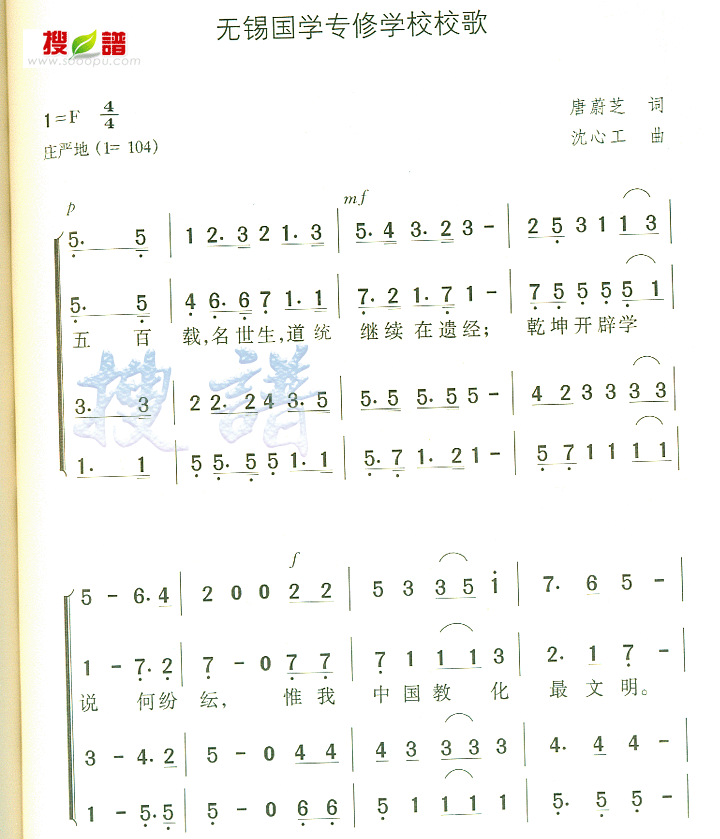 无锡国学专修学校校歌
搜譜
www.sooopu.com
1=F 4/4
唐蔚芝 词
庄严地(1=104)
沈心工 曲
p mf
5. 5 | 1 2. 3 2 1. 3 | 5. 4 3. 2 3 - | 2 5 3 1 1 3 |
5. 5 | 4 6. 6 7 1. 1 | 7. 2 1. 7 1 - | 7 5 5 5 5 1 |
五 百 载,名世生,道统 继续在遗经; 乾坤开辟学
搜譜
3. 3 | 2 2. 2 4 3. 5 | 5. 5 5. 5 5 - | 4 2 3 3 3 3 |
1. 1 | 5 5. 5 5 1. 1 | 5. 7 1. 2 1 - | 5 7 1 1 1 1 |
f
5 - 6. 4 | 2 0 0 2 2 | 5 3 3 5 1 | 7. 6 5 - |
1 - 7. 2 | 7 - 0 7 7 | 7 1 1 1 3 | 2. 1 7 - |
说 何纷 纭, 惟我 中国教 化 最文明。
3 - 4. 2 | 5 - 0 4 4 | 4 3 3 3 3 | 4. 4 4 - |
1 - 5. 5 | 5 - 0 6 6 | 5 1 1 1 1 | 5. 5 5 - |